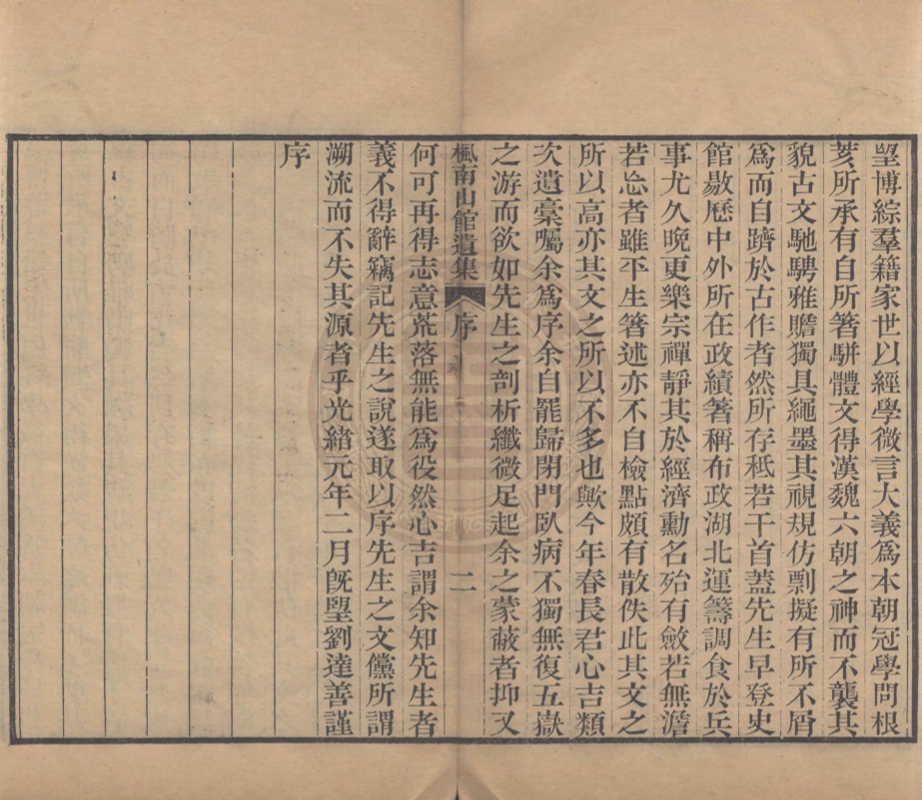 朢博綜羣籍家世以經學微言大義爲本朝冠學問根
荄所承有自所箸駢體文得漢魏六朝之神而不襲其
貌古文馳騁雅贍獨具繩墨其視規仿剽擬有所不屑
爲而自躋於古作者然所存秖若干首蓋先生早登史
館敭歷中外所在政績箸稱布政湖北運籌調食於兵
事尤久晚更樂宗禪靜其於經濟勳名殆有斂若無澹
若忘者雖平生箸述亦不自檢點頗有散佚此其文之
所以高亦其文之所以不多也歟今年春長君心吉類
次遺稾囑余爲序余自罷歸閉門臥病不獨無復五嶽
之游而欲如先生之剖析纖微足起余之蒙蔽者抑又
楓南山館遺集
序
二
何可再得志意荒落無能爲役然心吉謂余知先生者
義不得辭竊記先生之說遂取以序先生之文儻所謂
溯流而不失其源者乎光緒元年二月旣朢劉達善謹
序